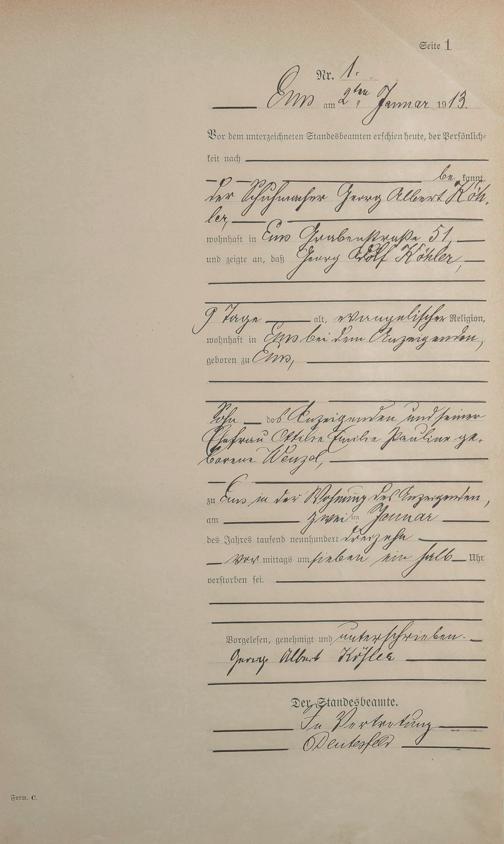 Seite 1
Nr. 1.
Ems am 2ten Januar 1913.
Vor dem unterzeichneten Standesbeamten erschien heute, der Persönlich-
keit nach
bekannt,
der Schuhmacher Georg Albert Köh-
ler,
wohnhaft in Ems Grabenstraße 51,
und zeigte an, daß Georg Adolf Köhler,
9 Tage alt, evangelischer Religion,
wohnhaft in Ems bei dem Anzeigenden,
geboren zu Ems,
Sohn des Anzeigenden und seiner
Ehefrau Ottilie Emilie Pauline ge-
borene Wenzel,
zu Ems in der Wohnung des Anzeigenden,
am zweiten Januar
des Jahres tausend neunhundert dreizehn
vor mittags um sieben ein halb Uhr
verstorben sei.
Vorgelesen, genehmigt und unterschrieben.
Georg Albert Köhler
Der Standesbeamte.
In Vertretung
Form. C.